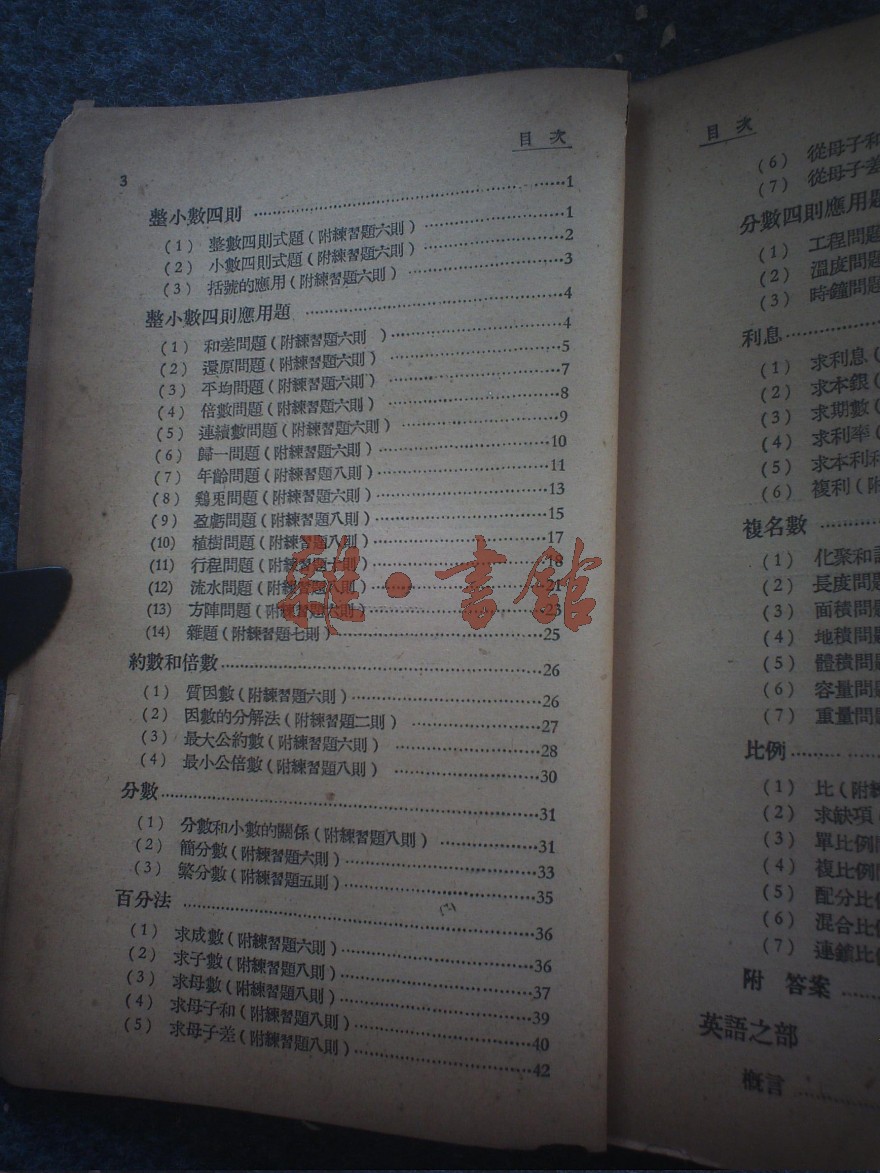 目 次
3
整小數四則 ……1
(1) 整數四則式題(附練習題六則)……1
(2) 小數四則式題(附練習題六則)……2
(3) 括號的應用(附練習題六則)……3
整小數四則應用題 ……4
(1) 和差問題(附練習題六則 )……4
(2) 還原問題(附練習題六則)……5
(3) 平均問題(附練習題六則)……7
(4) 倍數問題(附練習題六則)……8
(5) 連續數問題(附練習題六則)……9
(6) 歸一問題(附練習題六則)……10
(7) 年齡問題(附練習題八則)……11
(8) 鷄兎問題(附練習題六則)……13
(9) 盈虧問題(附練習題八則)……15
(10) 植樹問題(附練習題八則)……17
(11) 行程問題(附練習題十則)……18
(12) 流水問題(附練習題八則)……21
(13) 方陣問題(附練習題六則)……23
(14) 雜題(附練習題七則)……25
約數和倍數……26
(1) 質因數(附練習題六則)……26
(2) 因數的分解法(附練習題二則)……27
(3) 最大公約數(附練習題六則)……28
(4) 最小公倍數(附練習題八則)……30
分數……31
(1) 分數和小數的關係(附練習題八則)……31
(2) 簡分數(附練習題六則)……33
(3) 繁分數(附練習題五則)……35
百分法……36
(1) 求成數(附練習題六則)……36
(2) 求子數(附練習題八則)……37
(3) 求母數(附練習題八則)……39
(4) 求母子和(附練習題八則)……40
(5) 求母子差(附練習題八則)……42
雜·書館
目 次
(6) 從母子和
(7) 從母子差
分數四則應用題
(1) 工程問題
(2) 溫度問題
(3) 時鐘問題
利息……
(1) 求利息(
(2) 求本銀(
(3) 求期數(
(4) 求利率(
(5) 求本利和
(6) 複利(附
複名數……
(1) 化聚和
(2) 長度問題
(3) 面積問題
(4) 地積問題
(5) 體積問題
(6) 容量問題
(7) 重量問題
比例……
(1) 比(附練
(2) 求缺項(
(3) 單比例問
(4) 複比例問
(5) 配分比例
(6) 混合比例
(7) 連鎖比例
附 答案……
英語之部
概言……